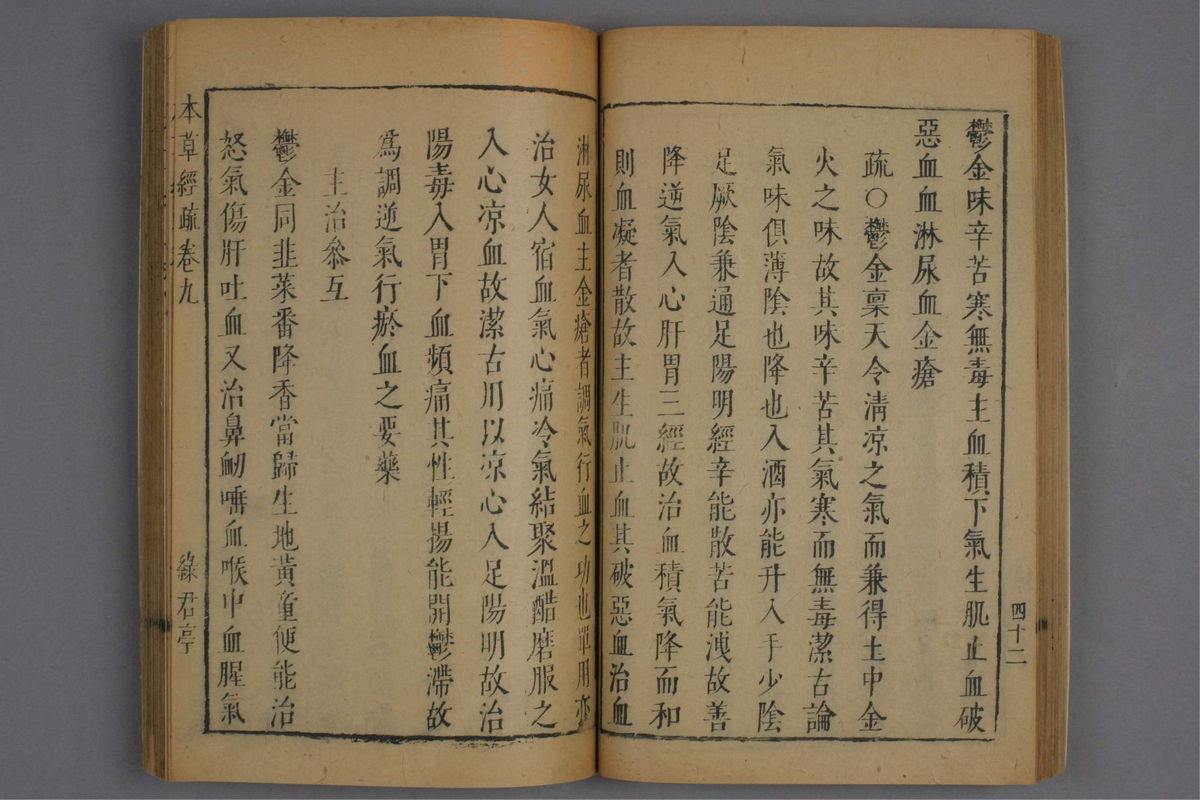 鬱金味辛苦寒無毒主血積下氣生肌止血破
惡血血淋尿血金瘡
疏〇鬱金稟天令清凉之氣而兼得土中金
火之味故其味辛苦其氣寒而無毒潔古論
氣味俱薄陰也降也入酒亦能升入手少陰
足厥陰兼通足陽明經辛能散苦能洩故善
降逆氣入心肝胃三經故治血積氣降而和
則血凝者散故主生肌止血其破惡血治血
四十二
淋尿血主金瘡者調氣行血之功也單用亦
治女人宿血氣心痛冷氣結聚溫醋磨服之
入心凉血故潔古用以凉心入足陽明故治
陽毒入胃下血頻痛其性輕揚能開鬱滯故
爲調逆氣行瘀血之要藥
主治叅互
鬱金同韭菜番降香當歸生地黃童便能治
怒氣傷肝吐血又治鼻衂唾血喉中血腥氣
本草經疏卷九
綠君亭